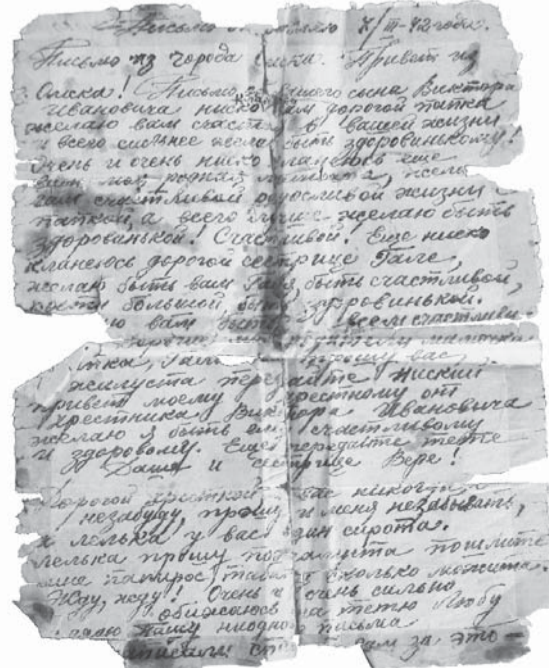 Письмо X/III-42 года.
Письмо из города Омска. Привет из
Омска! Письмо вашего сына Виктора
Ивановича ниско вам дорогой татка
желаю вам счастья в вашей жизни
и всего сильнее желаю быть здоровинькому!
Очень и очень ниско кланеюсь еще
вам моя родная мамочка, желаю
вам счастливой радосливой жизни с
таткой, а всего лучше желаю быть
здоровинькой! Счастливой! Еще ниско
кланеюсь дорогой сестрице Гале,
желаю быть вам Галя быть счастливой,
расти большой быть здоровинькой.
вам быть всем счастливи
мамочка
татка, Галя прошу вас,
жалуста передайте ниский
привет моему хрестному от
хрестника Виктора Ивановича
желаю я быть ему счастливому
и здоровому. Еще передайте тете
Даше и сестрице Вере!
Дорогой хресткой вас никогда
незабуду, прошу и меня незабывать,
а лелька у вас один сирота.
лелька прошу пошлите
мне папирос, табак сколько можите.
Жду, жду! Очень и очень сильно
обижаюсь на тетю Любу
дядю Пашу ниодного письма
написали вам за это-